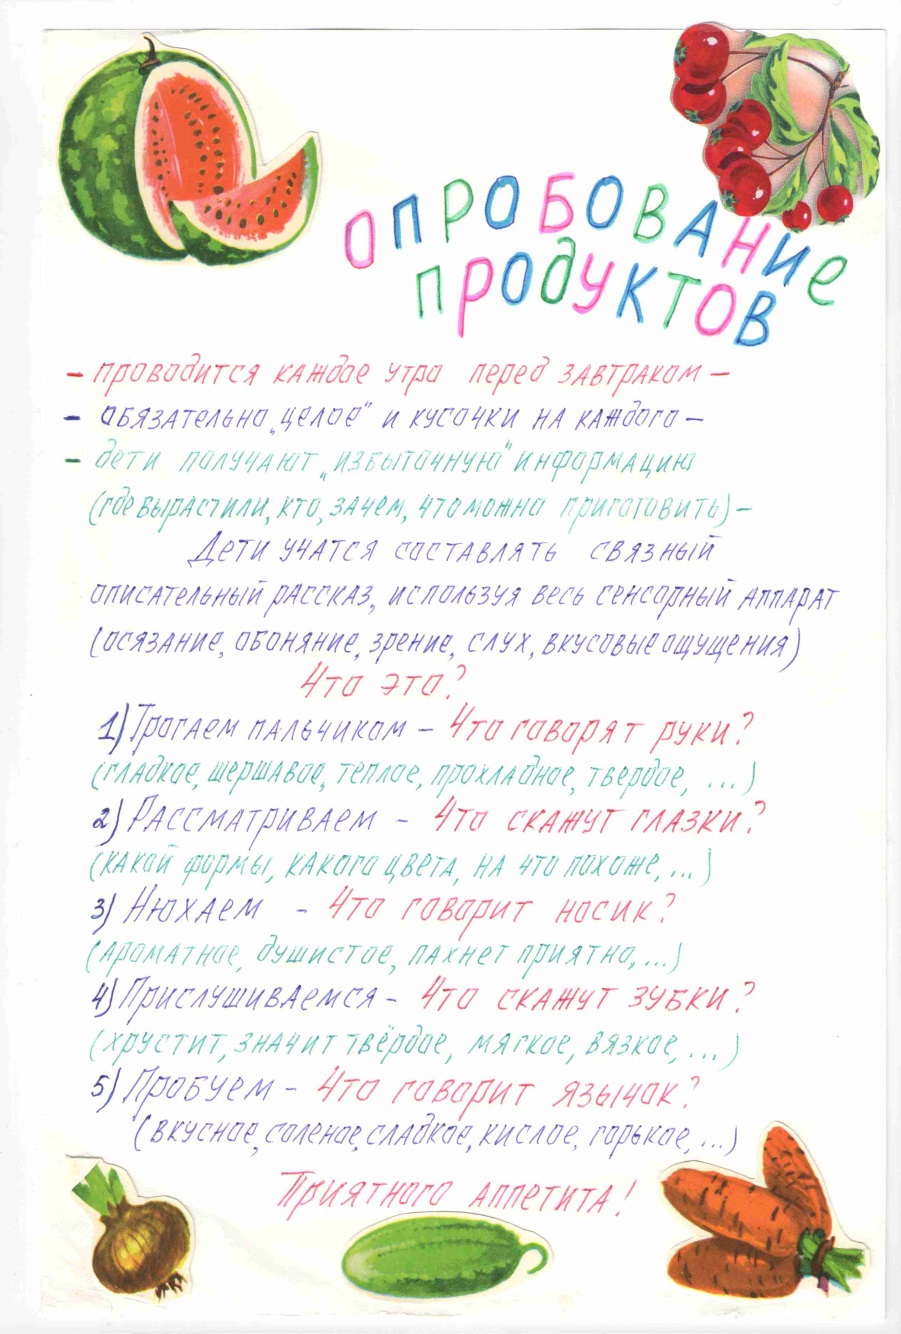 ОПРОБОВАНИЕ
ПРОДУКТОВ
– проводится каждое утро перед завтраком –
– обязательно „целое" и кусочки на каждого –
– дети получают „избыточную" информацию
(где вырастили, кто, зачем, что можно приготовить) –
Дети учатся составлять связный
описательный рассказ, используя весь сенсорный аппарат
(осязание, обоняние, зрение, слух, вкусовые ощущения)
Что это?
1) Трогаем пальчиком – Что говорят руки?
(гладкое, шершавое, теплое, прохладное, твердое, ...)
2) Рассматриваем – Что скажут глазки?
(какой формы, какого цвета, на что похоже, ...)
3) Нюхаем – Что говорит носик?
(ароматное, душистое, пахнет приятно, ...)
4) Прислушиваемся – Что скажут зубки?
(хрустит, значит твёрдое, мягкое, вязкое, ...)
5) Пробуем – Что говорит язычок?
(вкусное, соленое, сладкое, кислое, горькое, ...)
Приятного аппетита!